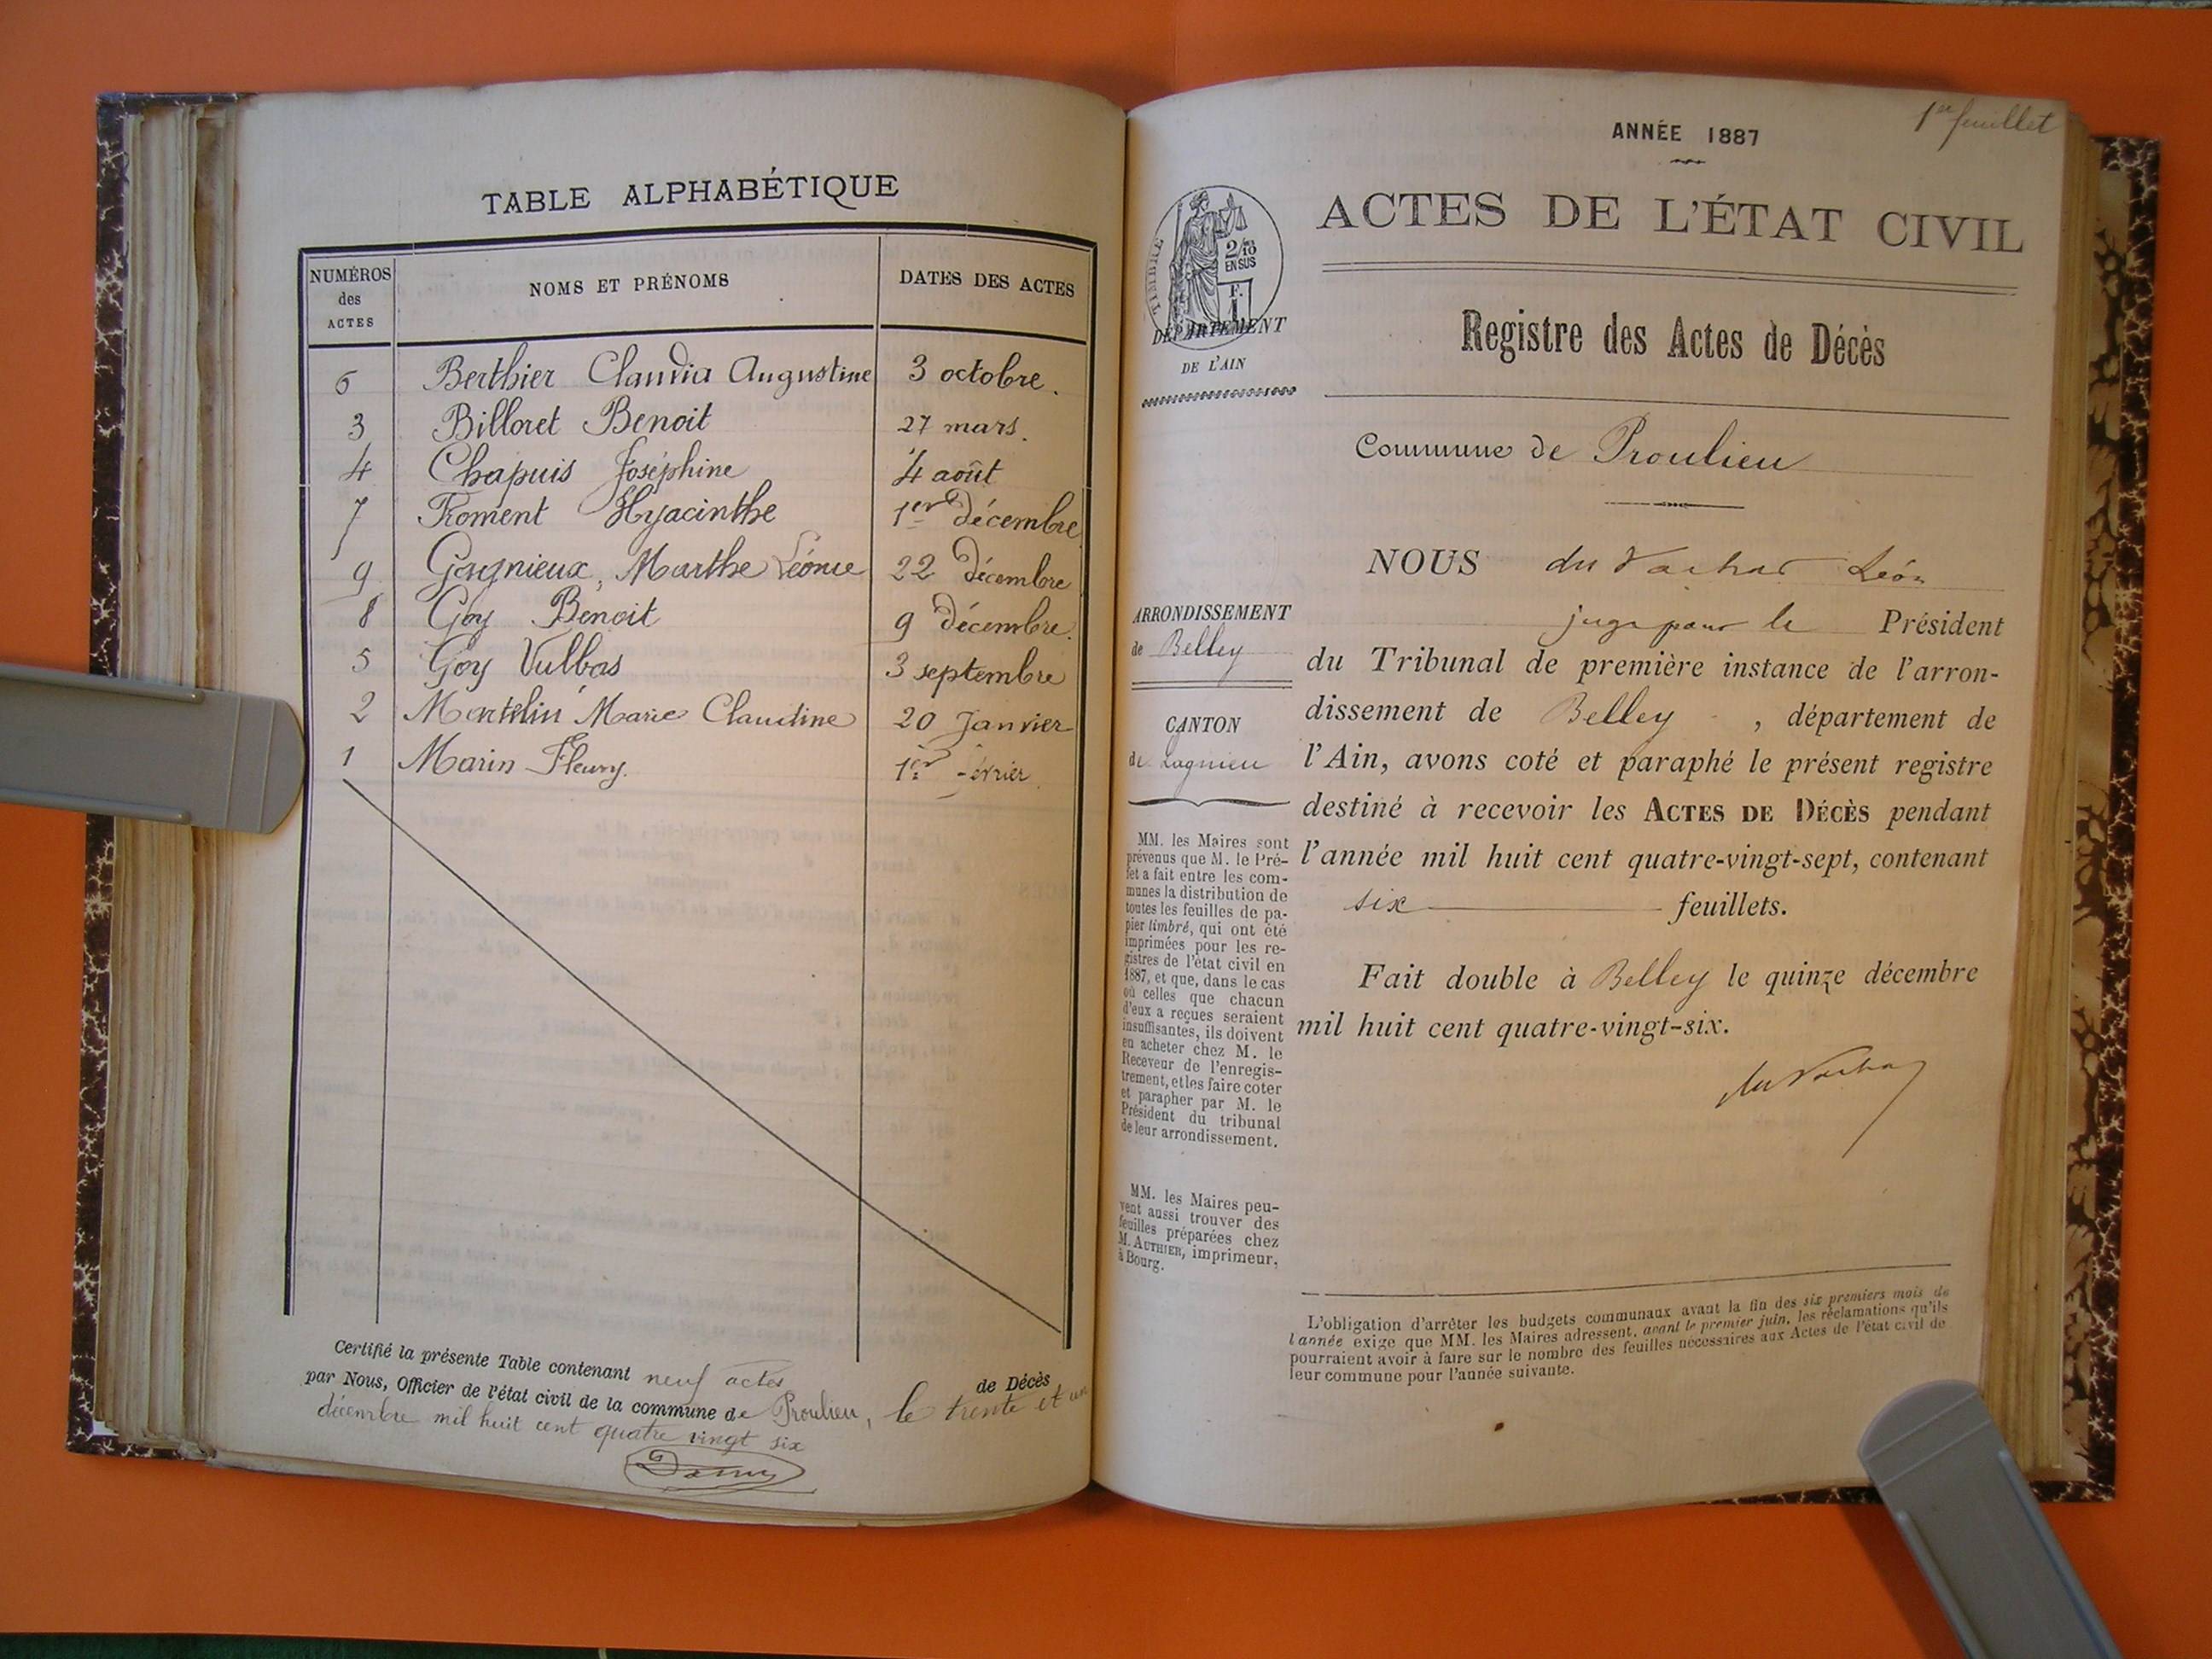 TABLE ALPHABÉTIQUE
NUMÉROS des ACTES NOMS ET PRÉNOMS DATES DES ACTES
6 Berthier Claudia Augustine 3 octobre.
3 Billoret Benoit 27 mars.
4 Chapuis Joséphine 4 août
7 Froment Hyacinthe 1er décembre
9 Gagnieux, Marthe Léonie 22 décembre
8 Goy Benoit 9 décembre.
5 Goy Vulbas 3 septembre
2 Martelin Marie Claudine 20 Janvier
1 Marin Fleury. 1er février
Certifié la présente Table contenant neuf actes de Décès
par Nous, Officier de l'état civil de la commune de Proulieu, le trente et un
décembre mil huit cent quatre vingt six
1er feuillet
ANNÉE 1887
ACTES DE L'ÉTAT CIVIL
TIMBRE
2/10
EN SUS
F.
1
DÉPARTEMENT
DE L'AIN
Registre des Actes de Décès
Commune de Proulieu
ARRONDISSEMENT
de Belley
CANTON
de Lagnieu
MM. les Maires sont
prévenus que M. le Pré-
fet a fait entre les com-
munes la distribution de
toutes les feuilles de pa-
pier timbré, qui ont été
imprimées pour les re-
gistres de l'état civil en
1887, et que, dans le cas
où celles que chacun
d'eux a reçues seraient
insuffisantes, ils doivent
en acheter chez M. le
Receveur de l'enregis-
trement, et les faire coter
et parapher par M. le
Président du tribunal
de leur arrondissement.
MM. les Maires peu-
vent aussi trouver des
feuilles préparées chez
M. AUTHIER, imprimeur,
à Bourg.
NOUS du Vachat Léon
juge pour le Président
du Tribunal de première instance de l'arron-
dissement de Belley, département de
l'Ain, avons coté et paraphé le présent registre
destiné à recevoir les ACTES DE DÉCÈS pendant
l'année mil huit cent quatre-vingt-sept, contenant
six feuillets.
Fait double à Belley le quinze décembre
mil huit cent quatre-vingt-six.
du Vachat
L'obligation d'arrêter les budgets communaux avant la fin des six premiers mois de
l'année exige que MM. les Maires adressent, avant le premier juin, les réclamations qu'ils
pourraient avoir à faire sur le nombre des feuilles nécessaires aux Actes de l'état civil de
leur commune pour l'année suivante.